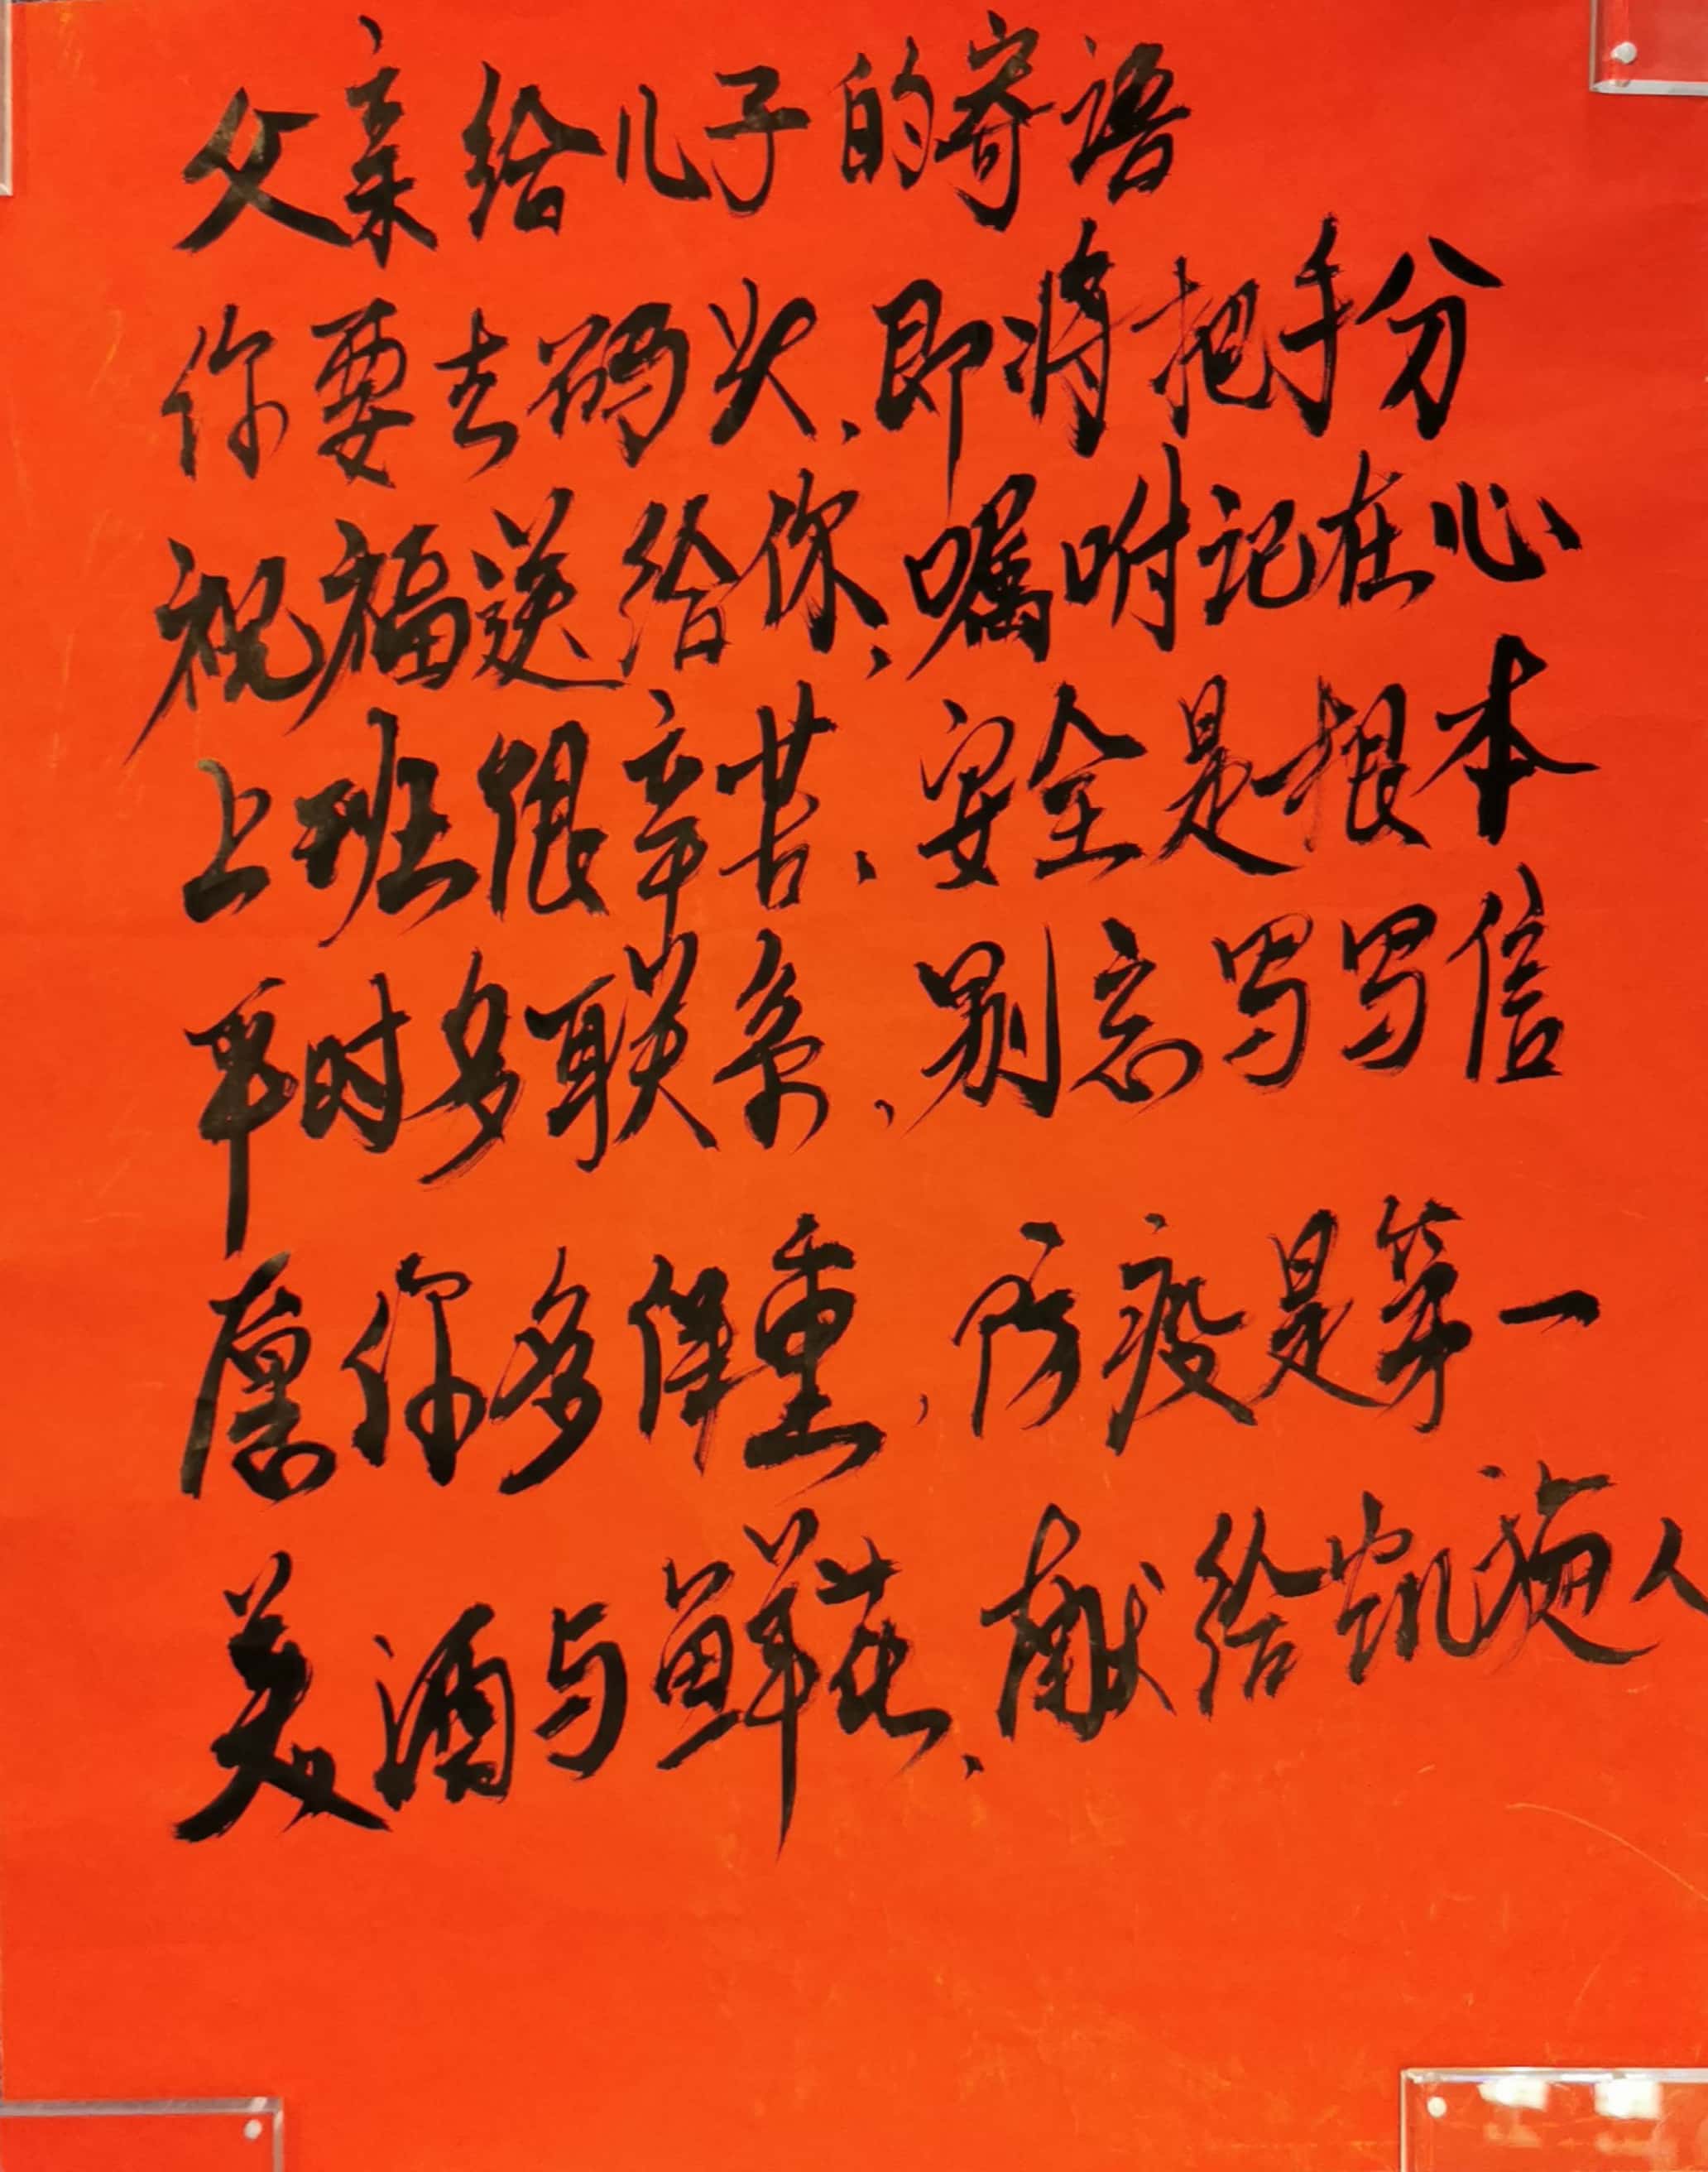 父亲给儿子的寄语
你要去码头、即将把手分
祝福送给你、嘱咐记在心
上班很辛苦、安全是根本
平时多联系、别忘写写信
愿你多保重、防疫是第一
美酒与鲜花、献给凯旋人